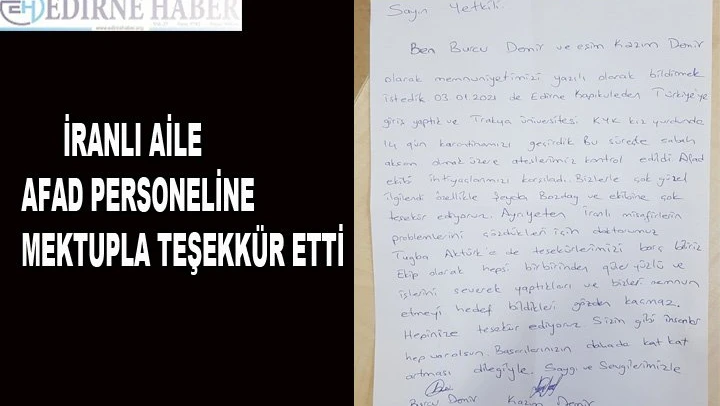 EH EDIRNE HABER
www.edirnehaber.org
İRANLI AİLE
AFAD PERSONELİNE
MEKTUPLA TEŞEKKÜR ETTİ
Sayın Yetkili.
Ben Burcu Demir ve eşim Kazım Demir
olarak memnuniyetimizi yazılı olarak bildirmek
istedik. 03.01.2021 de Edirne Kapıkuleden Türkiye'ye
giriş yaptık ve Trakya üniversitesi KYK kız yurdunda
14 gün karantinamızı geçirdik Bu sürede sabah
akşam olmak üzere ateşlerimiz kontrol edildi Afad
ekibi ihtiyaçlarımızı karşıladı. Bizlerle çok güzel
ilgilendi özellikle feyda Bozdağ ve ekibine çok
teşekür ediyoruz. Ayrıyeten iranlı misafirlerin
problemlerini çözdükleri için doktorumuz
Tuğba Aktürk'e de teşekürlerimizi borç biliriz
Ekip olarak hepsi birbirinden güler yüzlü ve
işlerini severek yaptıkları ve bizleri memnun
etmeyi hedef bildikleri gözden kaçmaz.
Hepinize teşekür ediyoruz Sizin gibi insanlar
hep var olsun. Başarılarınızın dahada kat kat
artması dileğiyle. Saygı ve Sevgilerimizle
Burcu Demir Kazım Demir